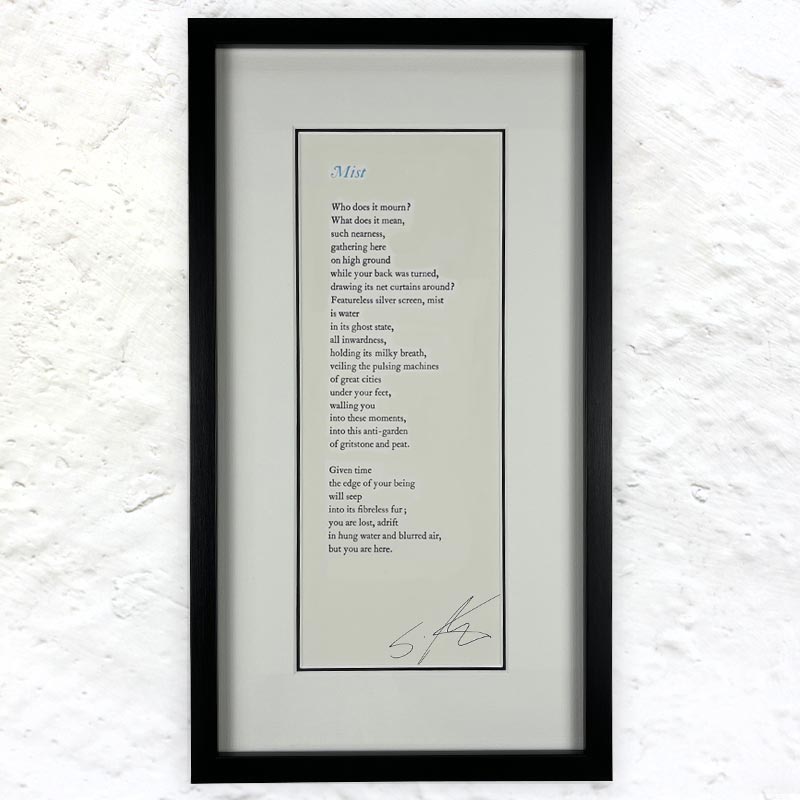 Mist
Who does it mourn?
What does it mean,
such nearness,
gathering here
on high ground
while your back was turned,
drawing its net curtains around?
Featureless silver screen, mist
is water
in its ghost state,
all inwardness,
holding its milky breath,
veiling the pulsing machines
of great cities
under your feet,
walling you
into these moments,
into this anti-garden
of gritstone and peat.
Given time
the edge of your being
will seep
into its fibreless fur;
you are lost, adrift
in hung water and blurred air,
but you are here.